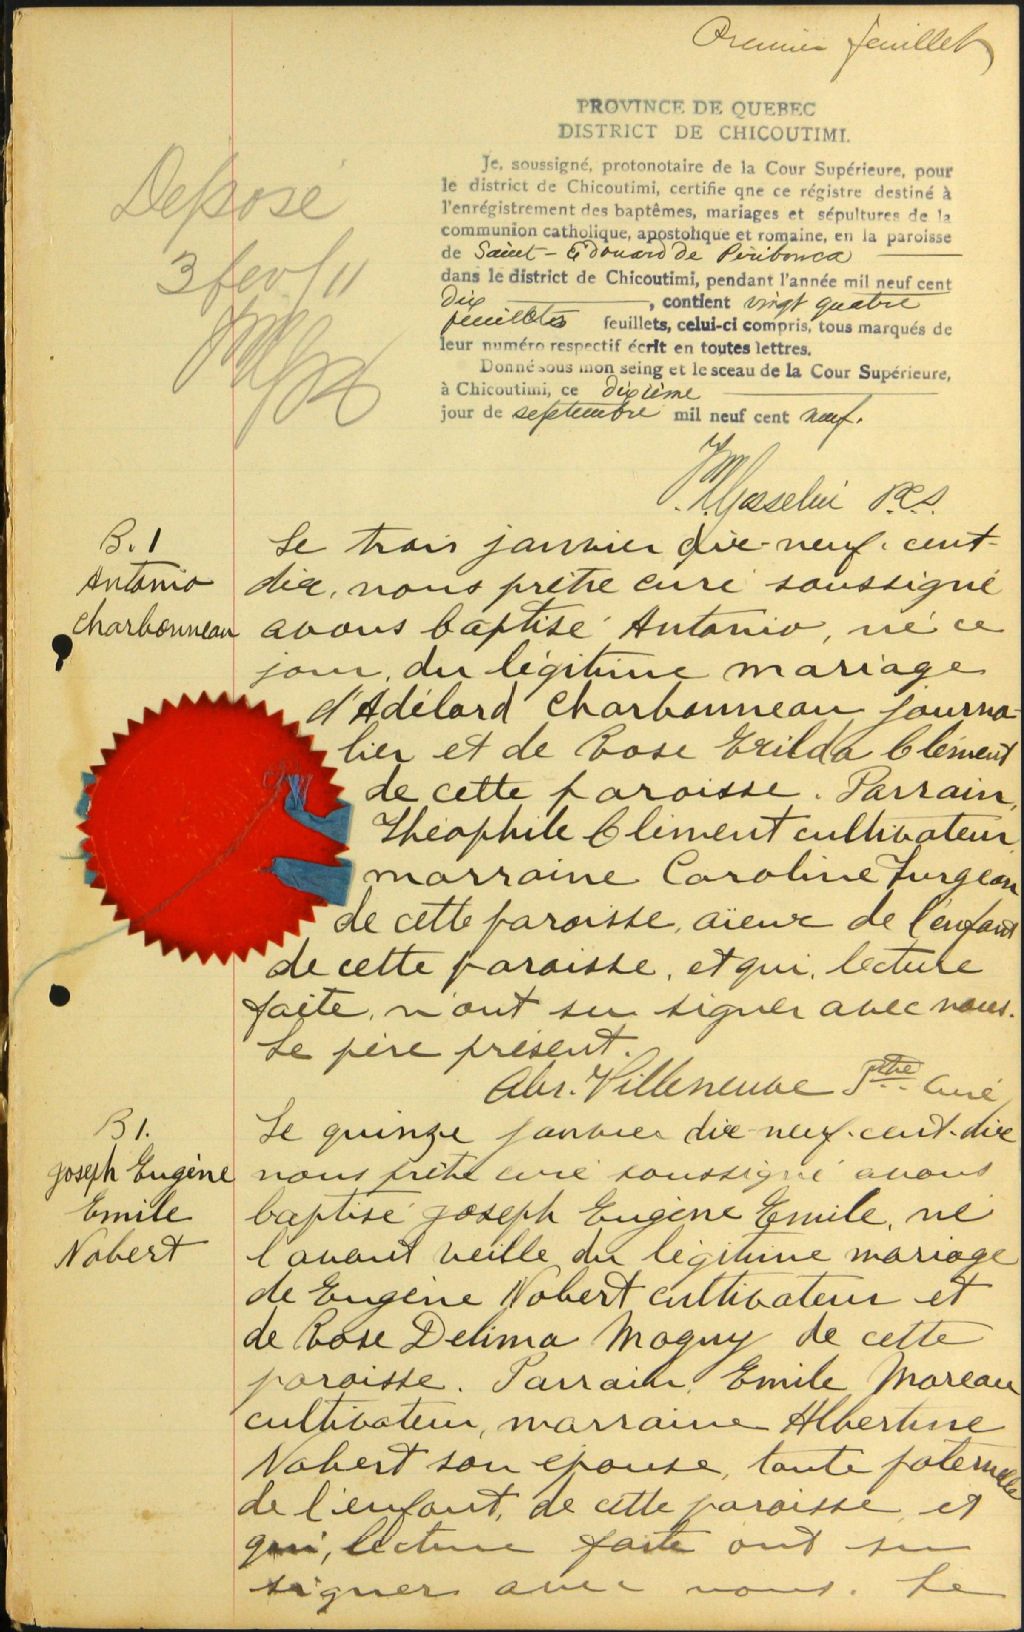 Premier feuillet
PROVINCE DE QUEBEC
DISTRICT DE CHICOUTIMI.
Je, soussigné, protonotaire de la Cour Supérieure, pour
le district de Chicoutimi, certifie qne ce régistre destiné à
l'enrégistrement des baptêmes, mariages et sépultures de la
communion catholique, apostolique et romaine, en la paroisse
de Saint-Edouard de Péribonca
dans le district de Chicoutimi, pendant l'année mil neuf cent
dix, contient vingt quatre
feuillets feuillets, celui-ci compris, tous marqués de
leur numéro respectif écrit en toutes lettres.
Donné sous mon seing et le sceau de la Cour Supérieure,
à Chicoutimi, ce dixième
jour de septembre mil neuf cent neuf.
Gosselin P.C.S.
Déposé
3 fev/11
B. 1
Antonio
Charbonneau
Le trois janvier dix-neuf-cent-
dix, nous prêtre curé soussigné
avons baptisé Antonio, né ce
jour, du légitime mariage
d'Adélard Charbonneau journa-
lier et de Rose Exilda Clément
de cette paroisse. Parrain,
Théophile Clément cultivateur,
marraine Caroline Turgeon
de cette paroisse, aïeux de l'enfant
de cette paroisse, et qui, lecture
faite, n'ont su signer avec nous.
Le père présent.
Abr. Villeneuve Ptre Curé
B 1.
Joseph Eugène
Emile
Nobert
Le quinze janvier dix-neuf-cent-dix
nous prêtre curé soussigné avons
baptisé Joseph Eugène Emile, né
l'avant veille du légitime mariage
de Eugène Nobert cultivateur et
de Rose Delima Moguy de cette
paroisse. Parrain, Emile Moreau
cultivateur, marraine Albertine
Nobert son épouse, tante paternelle
de l'enfant, de cette paroisse, et
qui, lecture faite ont su
signer avec nous. Le